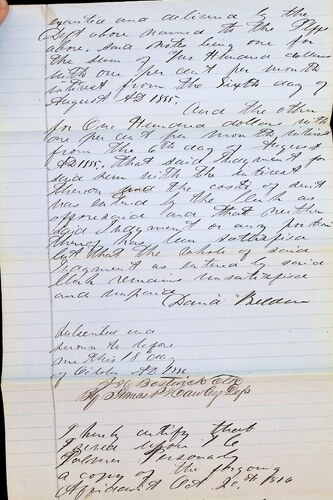 executed and delivered by the
Deft above named to the Plff
above. said notes being one for
the sum of Two Hundred dollars
with one per cent per month
interest from the Sixth day of
August AD 1855.
And the other
for One Hundred dollars with
one per cent per month interest
from the 6th day of August
AD 1855, that said Judgment for
said sum with the interest
thereon and the costs of suit
was entered by the Clerk as
aforesaid and that neither
said Judgment or any portion
thereof has been satisfied
but that the whole of said
Judgment as entered by said
Clerk remains unsatisfied
and unpaid.
David
Subscribed and
sworn to before
me this 18 day
of October AD
J H Bostwick Clk
By Dep
I hereby certify that
I served upon
personally
a copy of the foregoing
Affidavit Oct